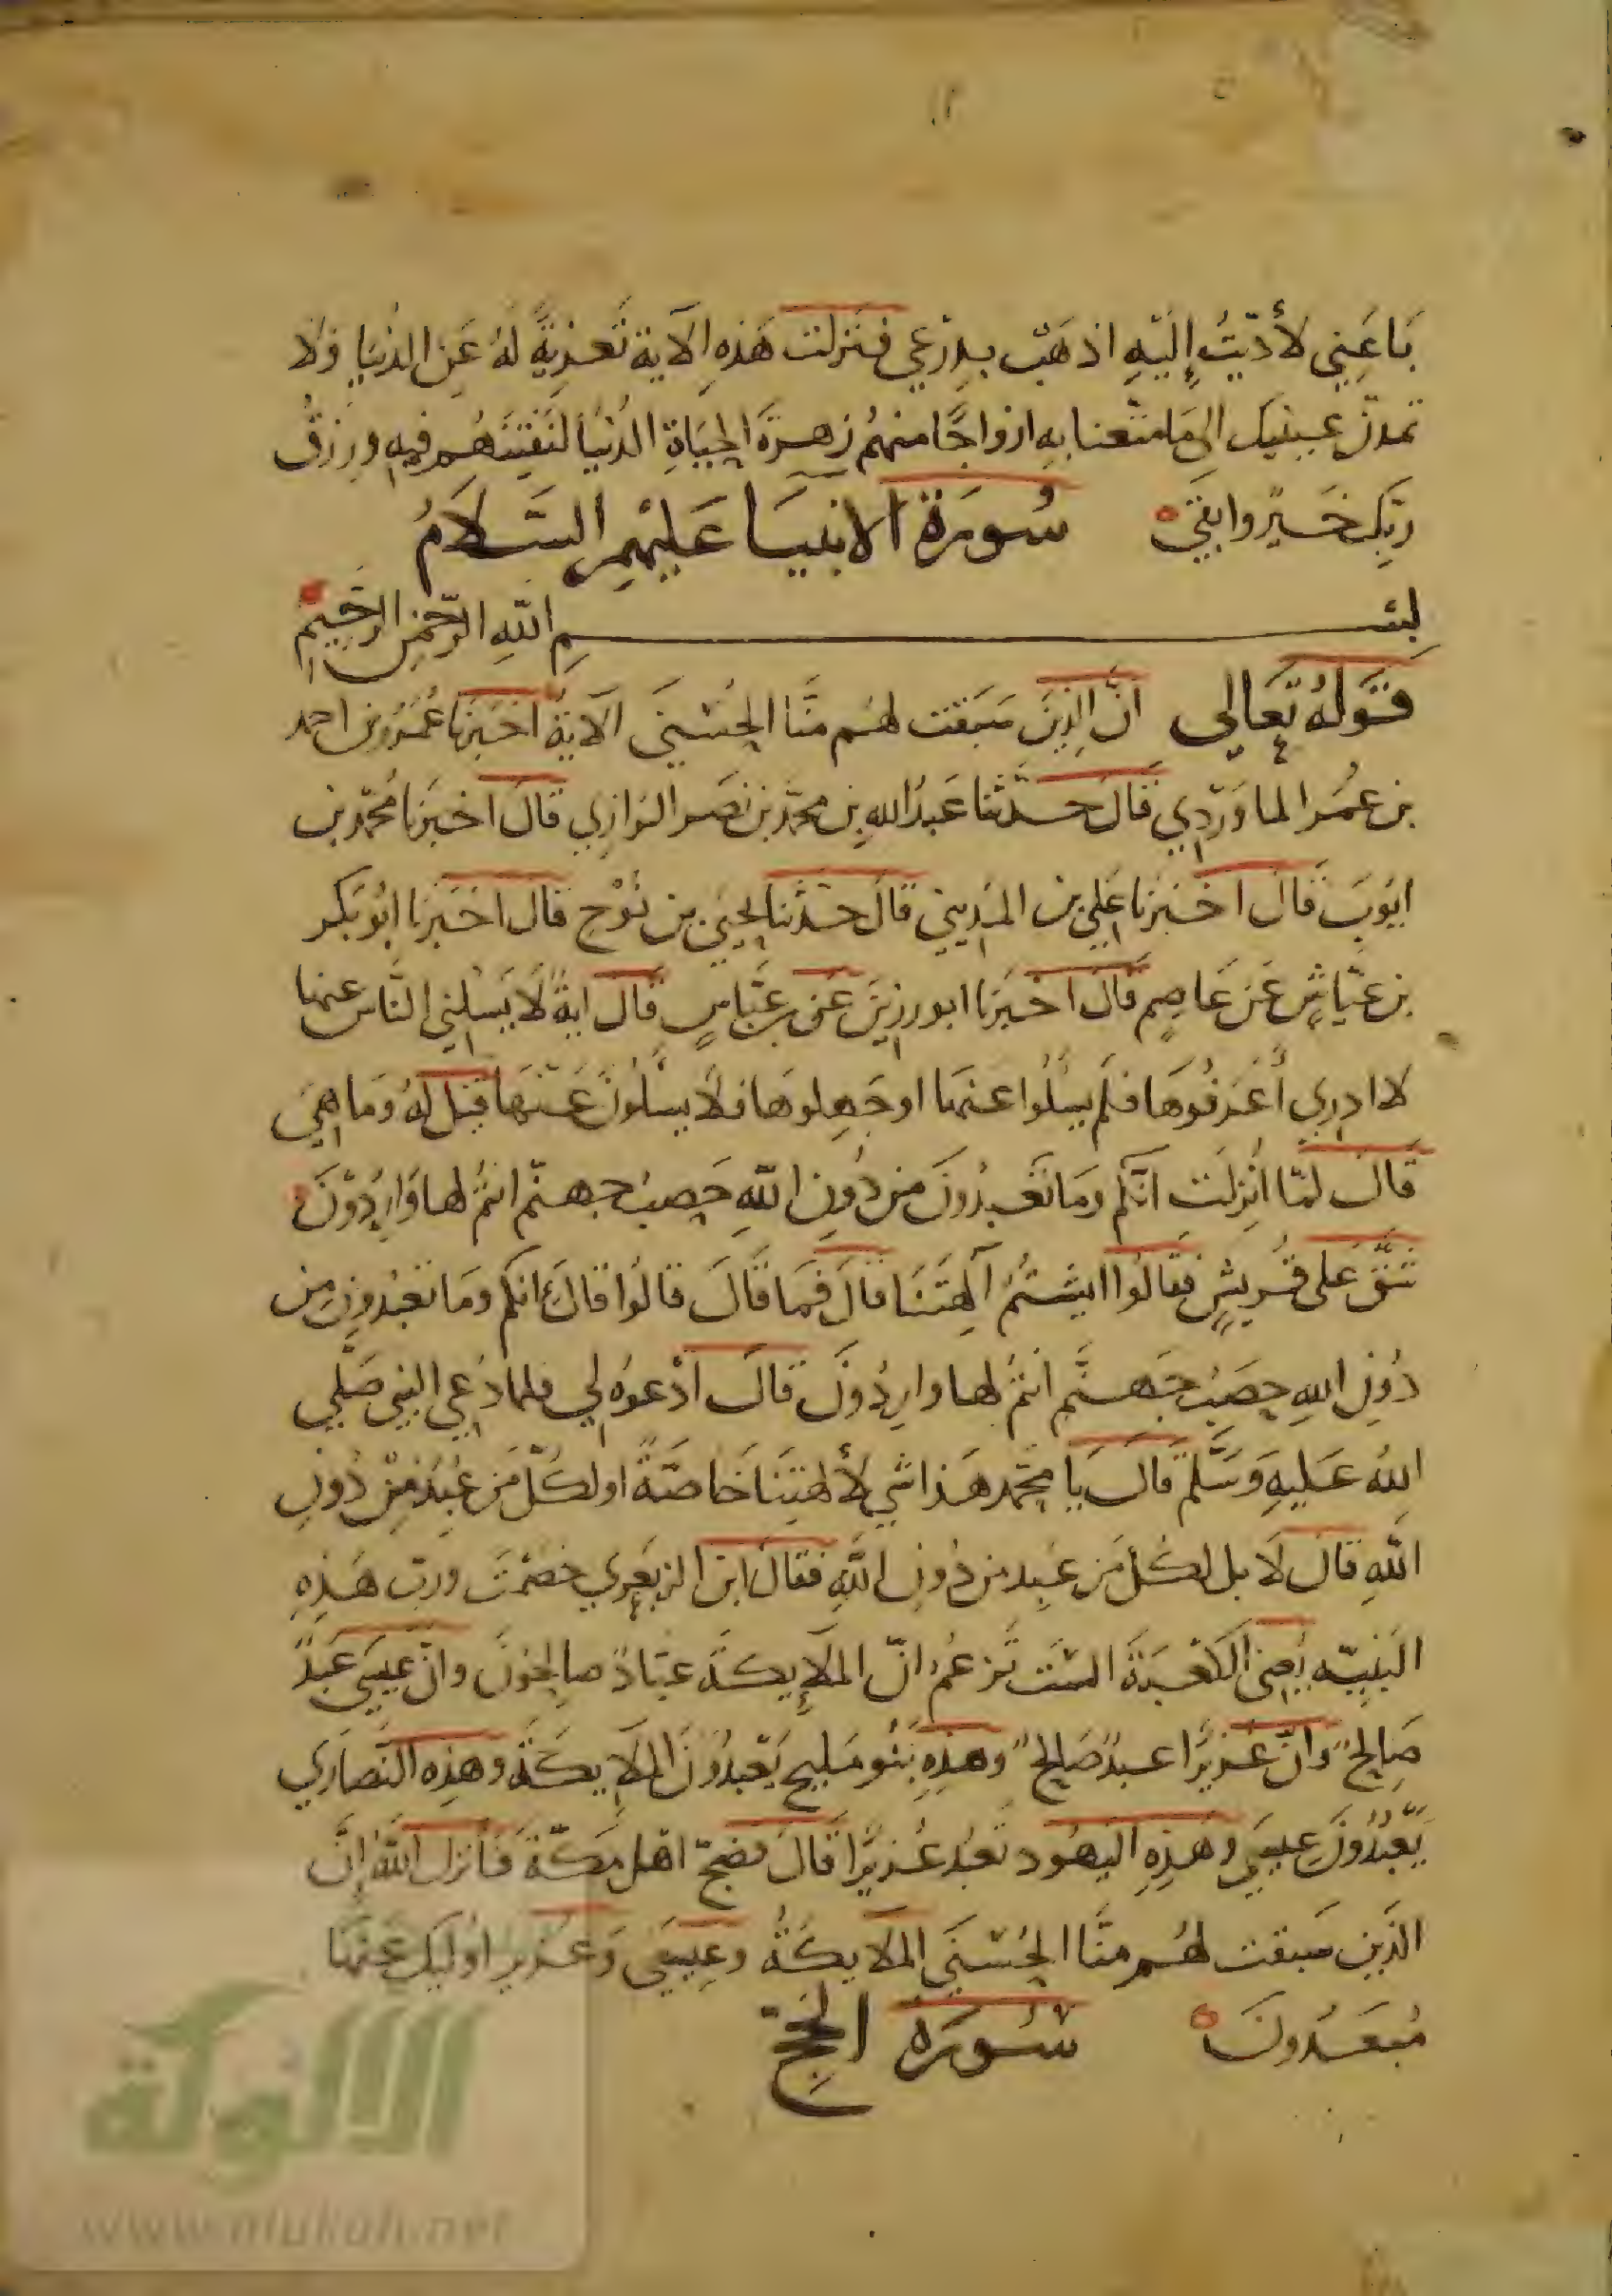 باعني لأديت إليه اذهب بدرعي فنزلت هذه الآية تعزية له عن الدنيا ولا
تمدن عينيك الى ما متعنا به ازواجا منهم زهرة الحياة الدنيا لنفتنهم فيه ورزق
ربك خير وابقى سورة الانبيا عليهم السلام
بسم الله الرحمن الرحيم
قوله تعالى ان الذين سبقت لهم منا الحسنى الآية اخبرنا عمر بن احمد
بن عمر الماوردي قال حدثنا عبد الله بن محمد بن نصر الرازي قال اخبرنا محمد بن
ايوب قال اخبرنا علي بن المديني قال حدثنا يحيى بن نوح قال اخبرنا ابو بكر
بن عياش عن عاصم قال اخبرنا ابو رزين عن بن عباس قال اية لا يسلني الناس عنها
لا ادري أعرفوها فلم يسلوا عنها او جهلوها فلا يسلون عنها قيل له وما هي
قال لما أنزلت انكم وما تعبدون من دون الله حصب جهنم انتم لها واردون
شق على قريش فقالوا ايشتم آلهتنا قال فما قال قالوا قال انكم وما تعبدون من
دون الله حصب جهنم انتم لها واردون قال ادعوه لي فلما دعي النبي صلى
الله عليه وسلم قال يا محمد هذا شي لألهتنا خاصة او لكل من عبد من دون
الله قال لا بل لكل من عبد من دون الله فقال ابن الزبعرى خصمت ورب هذه
البنية يعني الكعبة الست تزعم ان الملايكة عباد صالحون وان عيسى عبد
صالح وان عزيرا عبد صالح وهذه بنو مليح يعبدون الملايكة وهذه النصارى
يعبدون عيسى وهذه اليهود تعبد عزيرا قال فضج اهل مكة فأنزل الله إن
الذين سبقت لهم منا الحسنى الملايكة وعيسى وعزير اوليك عنها
مبعدون سورة الحج
الألوكة
www.alukah.net